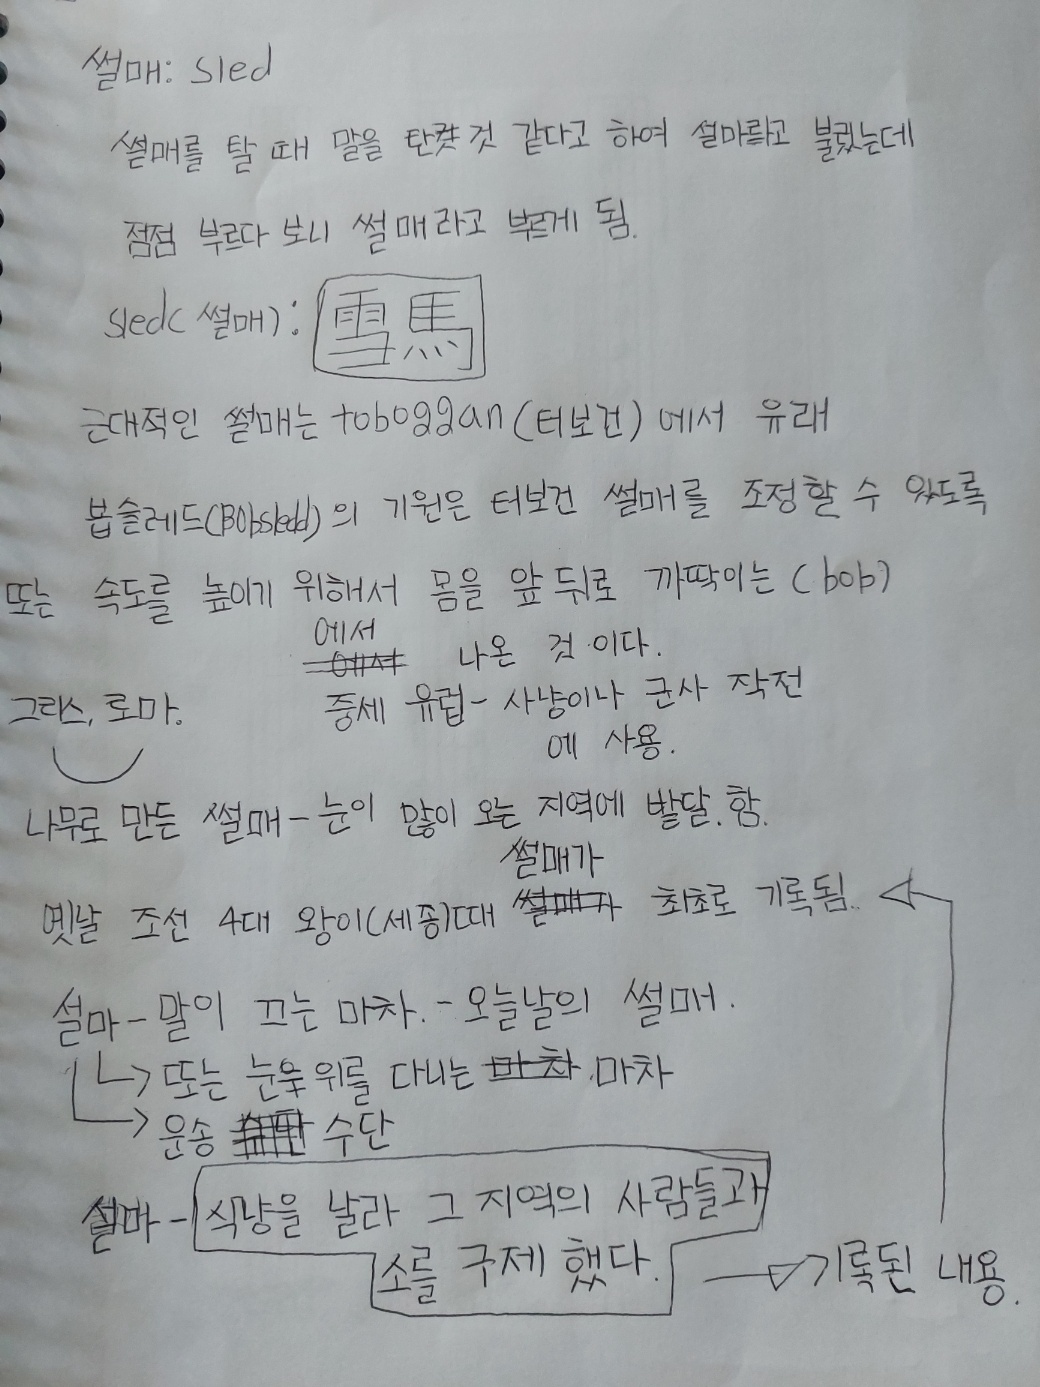 썰매: sled
썰매를 탈 때 말을 탄 것 같다고 하여 설마라고 불렀는데
점점 부르다 보니 썰매라고 부르게 됨.
sled(썰매): 雪馬
근대적인 썰매는 toboggan(터보건)에서 유래
봅슬레드(Bobsled)의 기원은 터보건 썰매를 조정할 수 있도록
또는 속도를 높이기 위해서 몸을 앞 뒤로 까딱이는 (bob)
에서 나온 것 이다.
그리스, 로마. 중세 유럽 - 사냥이나 군사 작전
에 사용.
나무로 만든 썰매 - 눈이 많이 오는 지역에 발달.함.
썰매가
옛날 조선 4대 왕이(세종)때 최초로 기록됨..
설마 - 말이 끄는 마차. - 오늘날의 썰매.
또는 눈 위를 다니는 마차
운송 수단
설마 - 식량을 날라 그 지역의 사람들과
소를 구제 했다. 기록된 내용.